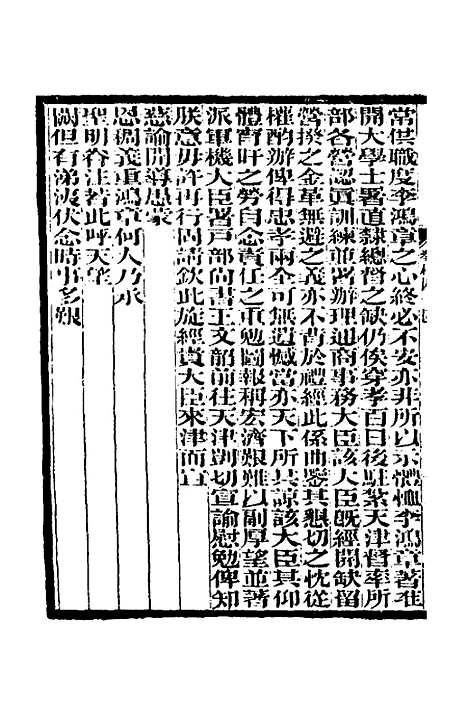 常供職度李鴻章之心終必不安亦非所以示體恤李鴻章著准
開大學士署直隸總督之缺仍俟穿孝百日後駐紮天津督率所
部各營認真訓練並署辦理通商事務大臣該大臣既經開缺留
營揆之金革無避之義亦不背於禮經此係曲鑒其懇切之忱從
權酌辦俾得忠孝兩全可無遺憾當亦天下所共諒該大臣其仰
體宵旰之勞自念責任之重勉圖報稱宏濟艱難以副厚望並著
派軍機大臣署戶部尚書王文韶前往天津剴切宣諭慰勉俾知
朕意毋許再行固請欽此旋經貴大臣來津面宣
慈諭開導愚蒙
恩稠義重鴻章何人乃承
聖明眷注若此呼天望
闕但有涕淚伏念時事多艱